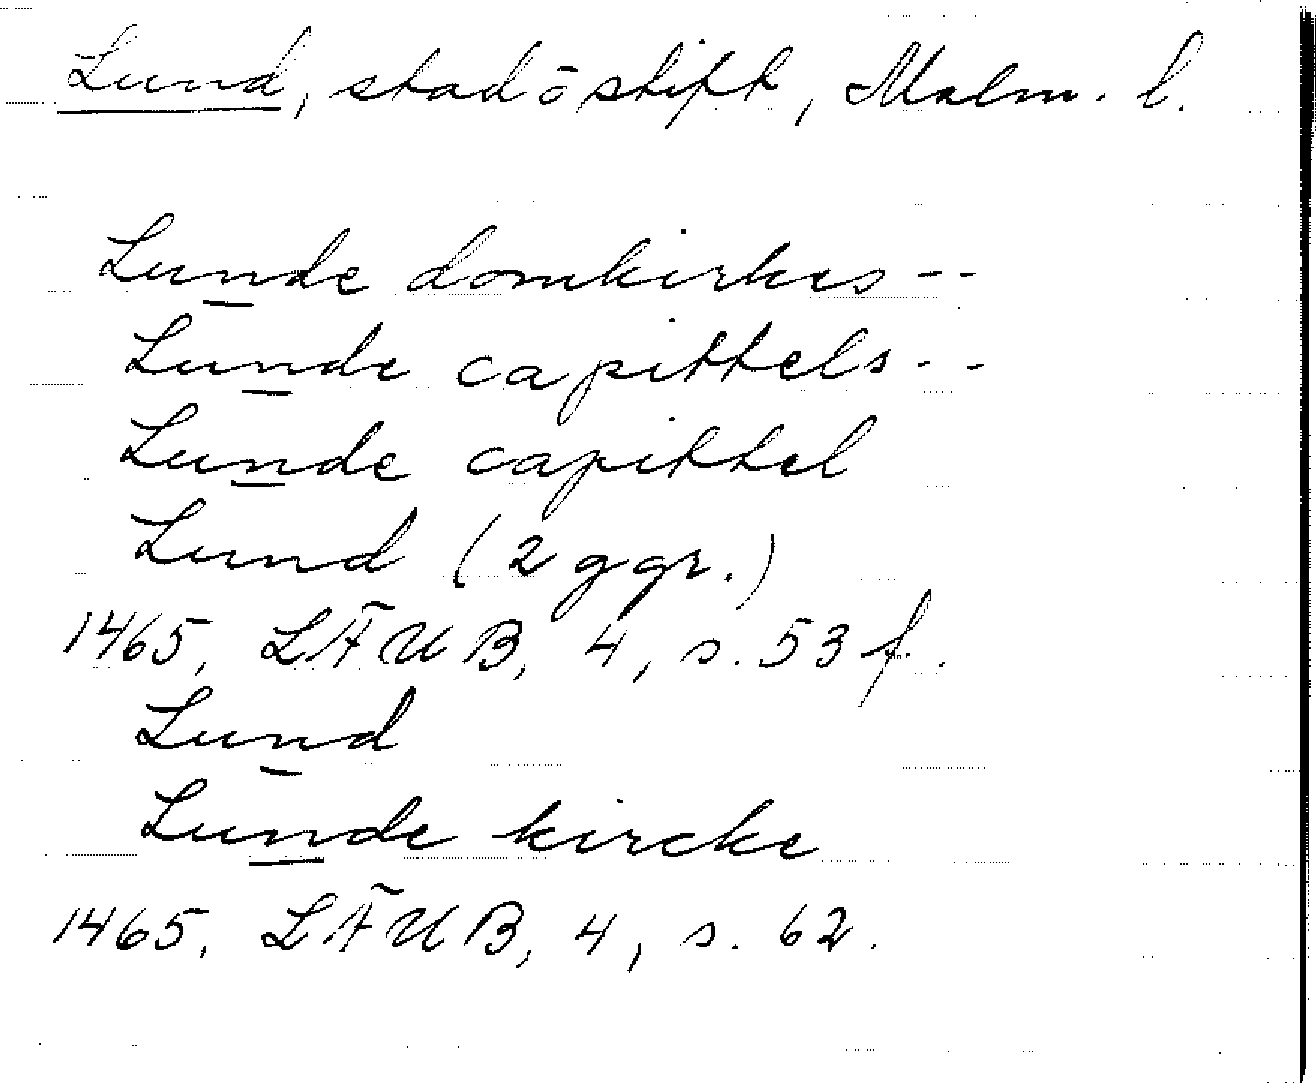 Lund, stad o stift, Malm. l.
Lunde domkirkes --
Lunde capittels --
Lunde capittel
Lund (2 ggr.)
1465, LÄUB, 4, s. 53 f.
Lund
Lunde kircke
1465, LÄUB, 4, s. 62.